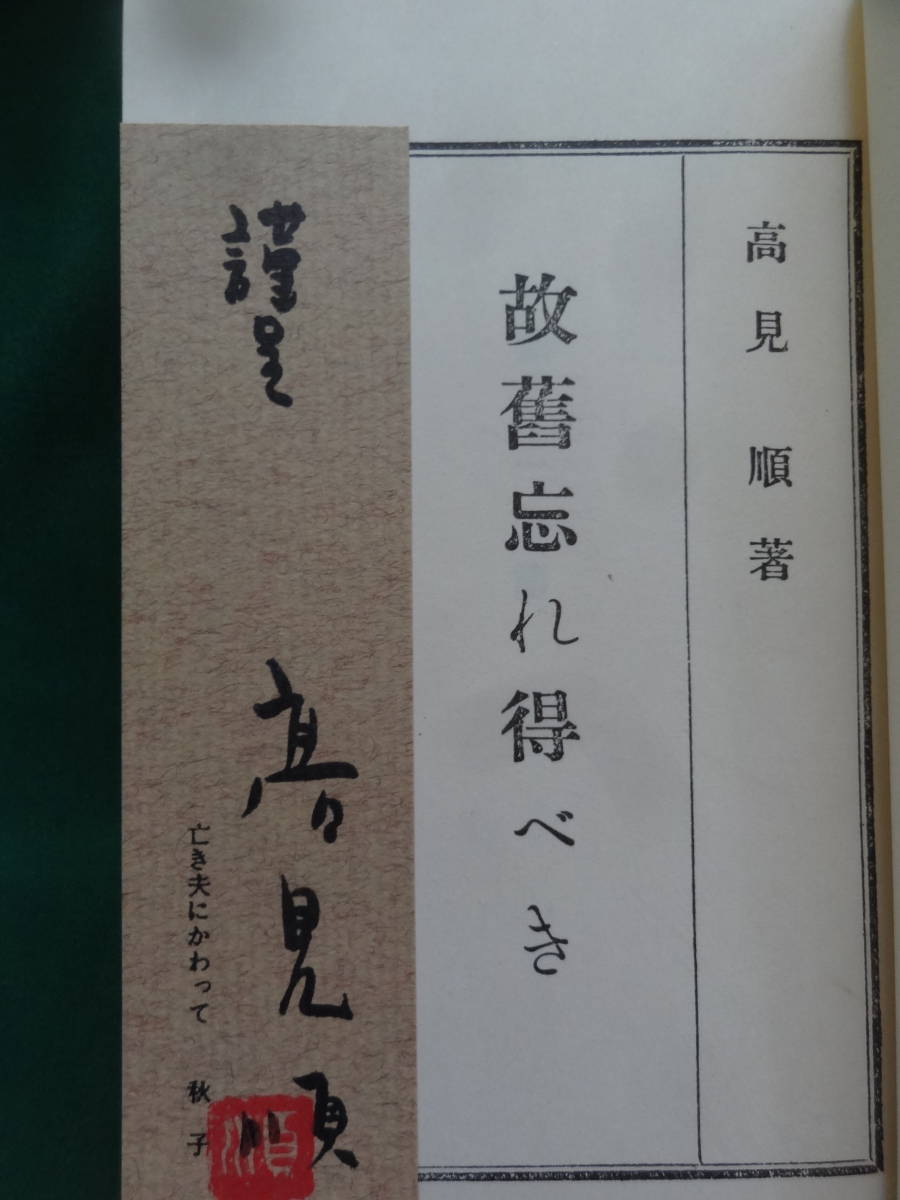 高見順著
故舊忘れ得べき
謹呈
高見順
亡き夫にかわって 秋子
順